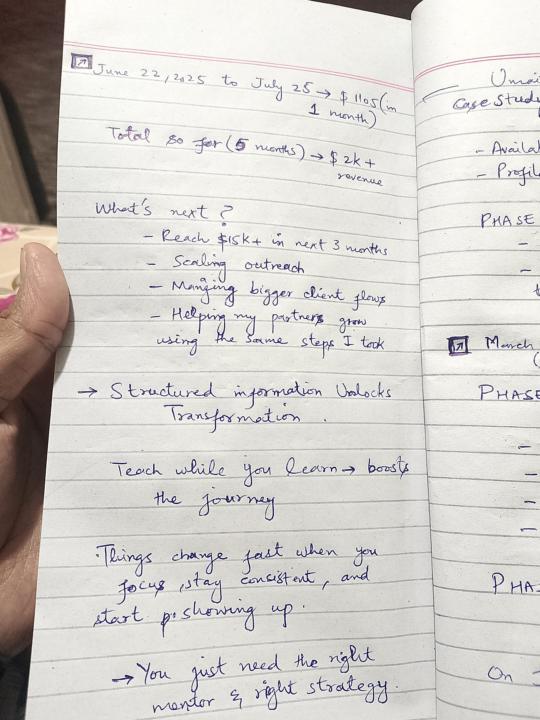 June 22, 2025 to July 25 → $ 1105 (in
1 month)
Total so for (5 months) → $ 2k +
revenue
What's next ?
- Reach $15k+ in next 3 months
- Scaling outreach
- Manging bigger client flows
- Helping my partners grow
using the same steps I took
→ Structured information Unlocks
Transformation .
Teach while you learn → boosts
the journey
·Things change fast when you
focus, stay consistent, and
start showing up.
→ You just need the right
mentor & right strategy.
Case Stud
- Availa
- Profil
PHASE
-
-
March
PHASE
-
-
-
-
PHA
On